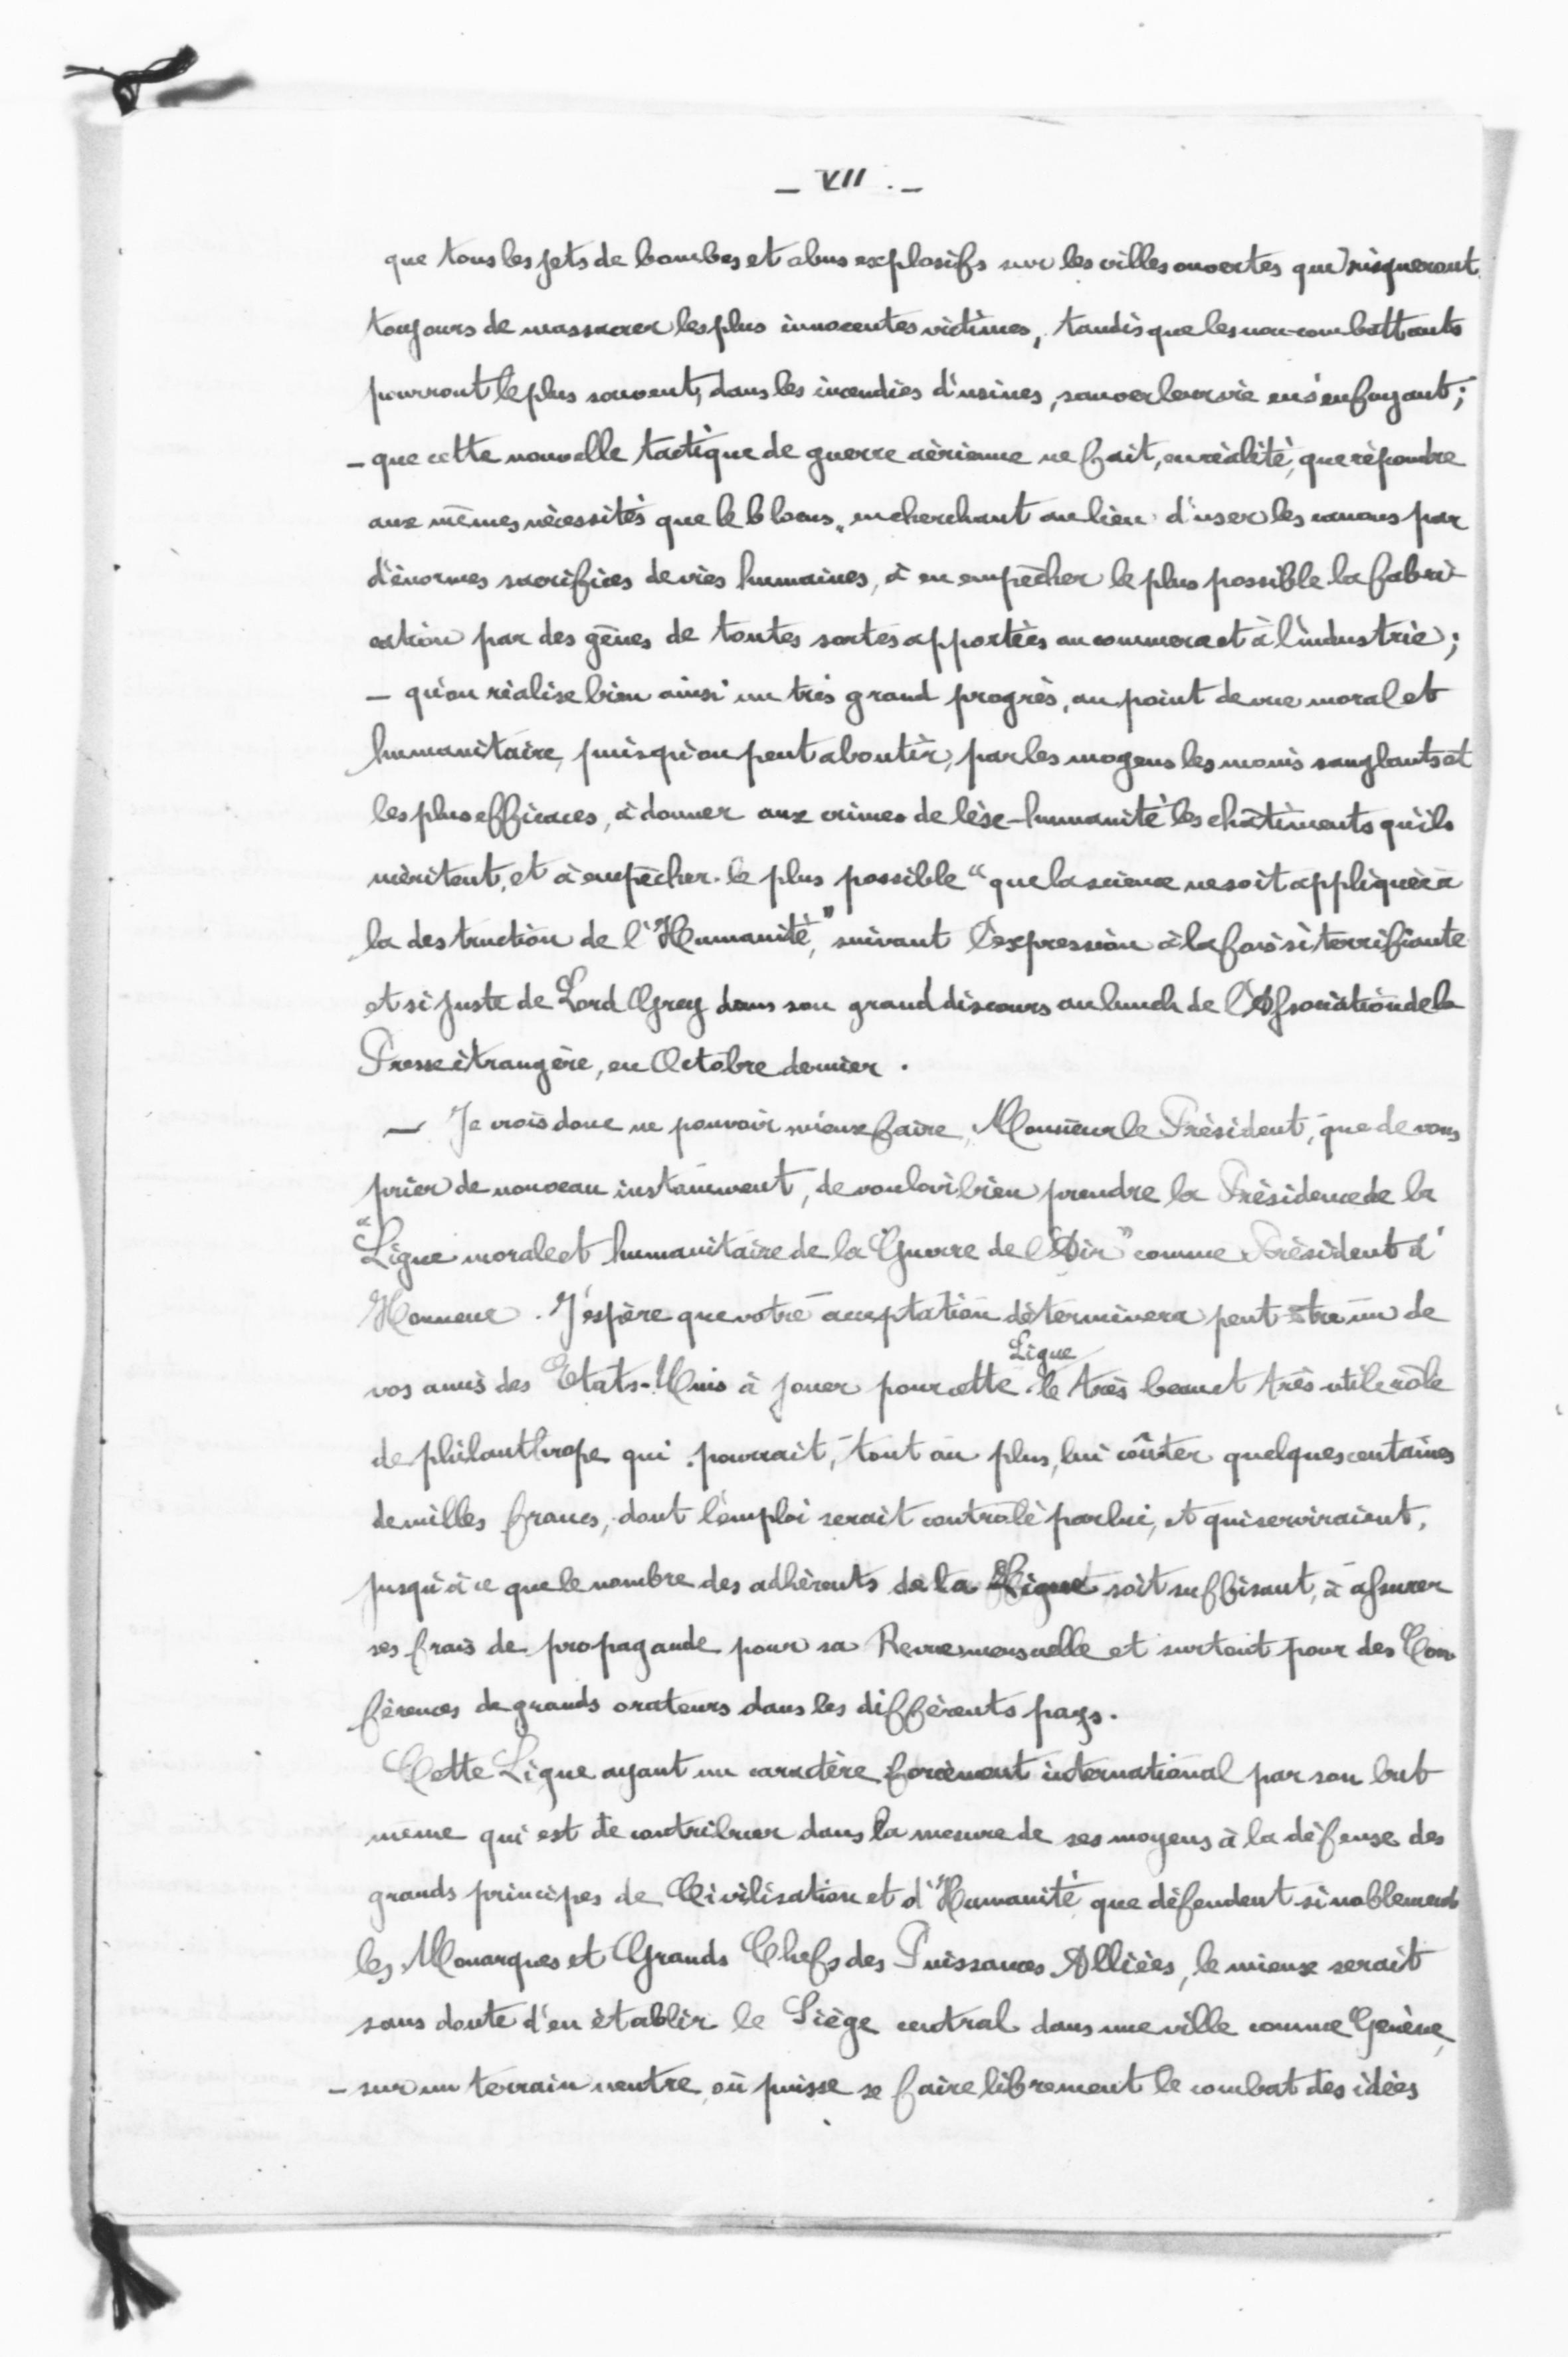 _ VII . _
que tous les jets de bombes et obus explosifs sur les villes ouvertes qui risqueront
toujours de massacrer les plus innocentes victimes, tandis que les non-combattants
pourront le plus souvent, dans les incendies d'usines, sauver leur vie en s'enfuyant ;
- que cette nouvelle tactique de guerre aérienne ne fait, en réalité, que répondre
aux mêmes nécessités que le blocus, en cherchant au lieu d'user les canons par
d'énormes sacrifices de vies humaines, à en empêcher le plus possible la fabri-
cation par des gênes de toutes sortes apportées au commerce et à l'industrie ;
- qu'on réalise bien ainsi un très grand progrès, au point de vue moral et
humanitaire, puisqu'on peut aboutir, par les moyens les moins sanglants et
les plus efficaces, à donner aux crimes de lèse-humanité les châtiments qu'ils
méritent, et à empêcher le plus possible "que la science ne soit appliquée à
la destruction de l'Humanité," suivant l'expression à la fois si terrifiante
et si juste de Lord Grey dans son grand discours au lunch de l'Association de la
Presse étrangère, en Octobre dernier .
- Je crois donc ne pouvoir mieux faire, Monsieur le Président, que de vous
prier de nouveau instamment, de vouloir bien prendre la Présidence de la
"Ligue morale et humanitaire de la Guerre de l'Air" comme Président d'
Honneur . J'espère que votre acceptation déterminera peut-être un de
vos amis des Etats-Unis à jouer pour cette Ligue le très beau et très utile rôle
de philanthrope qui pourrait, tout au plus, lui coûter quelques centaines
de milles francs, dont l'emploi serait contrôlé par lui, et qui serviraient,
jusqu'à ce que le nombre des adhérents de la Ligue soit suffisant, à assurer
ses frais de propagande pour sa Revue mensuelle et surtout pour des Con-
férences de grands orateurs dans les différents pays.
Cette Ligue ayant un caractère forcément international par son but
même qui est de contribuer dans la mesure de ses moyens à la défense des
grands principes de Civilisation et d'Humanité que défendent si noblement
les Monarques et Grands Chefs des Puissances Alliées, le mieux serait
sans doute d'en établir le Siège central dans une ville comme Genève,
- sur un terrain neutre, où puisse se faire librement le combat des idées